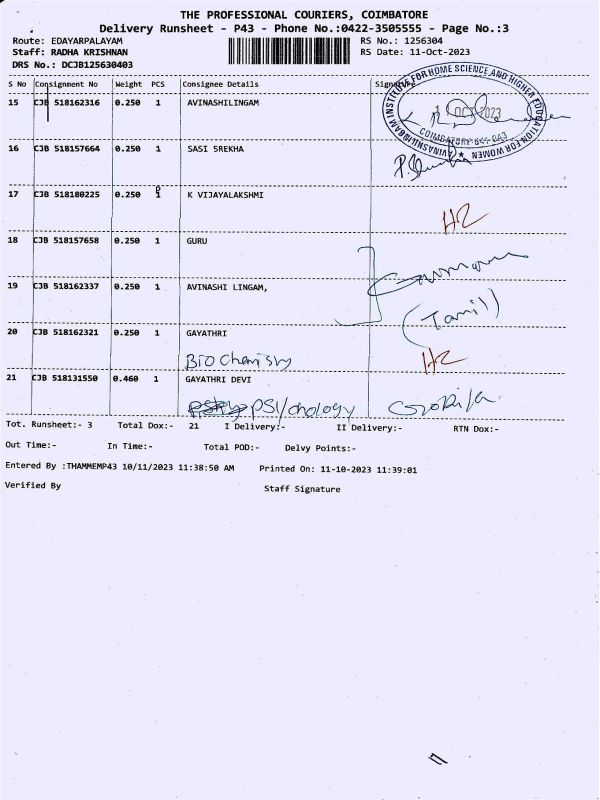 THE PROFESSIONAL COURIERS, COIMBATORE
Delivery Runsheet - P43 - Phone No.:0422-3505555 - Page No.:3
Route: EDAYARPALAYAM RS No.: 1256304
Staff: RADHA KRISHNAN RS Date: 11-Oct-2023
DRS No.: DCJB125630403
S No Consignment No Weight PCS Consignee Details Signature
15 CJB 518162316 0.250 1 AVINASHILINGAM
AVINASHILINGAM INSTITUTE FOR HOME SCIENCE AND HIGHER EDUCATION FOR WOMEN
OCT 2023
COIMBATORE-641 043
16 CJB 518157664 0.250 1 SASI 5REKHA
17 CJB 518180225 0.250 1 K VIJAYALAKSHMI
H2
18 CJB 518157658 0.250 1 GURU
19 CJB 518162337 0.250 1 AVINASHI LINGAM,
(Tamil)
20 CJB 518162321 0.250 1 GAYATHRI
Bio Chemisty H2
21 CJB 518131550 0.460 1 GAYATHRI DEVI
PSI/chology
Tot. Runsheet:- 3 Total Dox:- 21 I Delivery:- II Delivery:- RTN Dox:-
Out Time:- In Time:- Total POD:- Delvy Points:-
Entered By :THAMMEMP43 10/11/2023 11:38:50 AM Printed On: 11-10-2023 11:39:01
Verified By Staff Signature